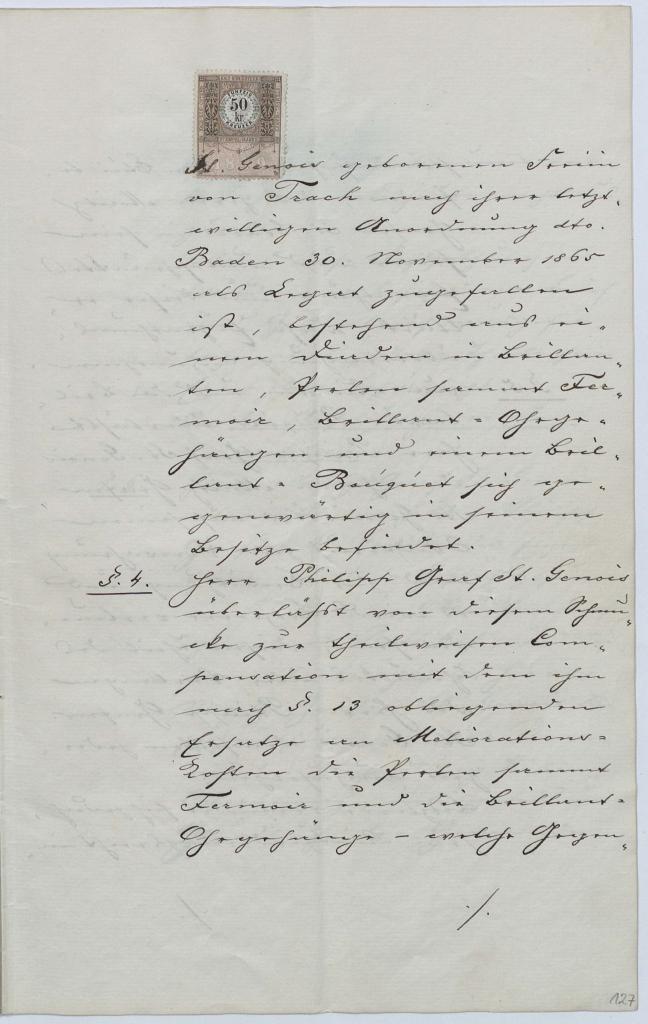 FÜNFZIG
50
kr.
KREUZER
St. Genois geborenen Freiin
von Trach nach ihrer letzt„
willigen Anordnung dto.
Baden 30. November 1865
als Legat zugefallen
ist, bestehend aus ei„
nem Diadem in Brillan„
ten, Perlen sammt Fer„
moir, Brillant=Ohrge„
hängen und einem Bril„
lant=Bouquet sich ge„
genwärtig in seinem
Besitze befindet.
§. 4. Herr Philipp Graf St. Genois
überläßt von diesem Schmu„
cke zur theilweisen Com„
pensation mit dem ihm
nach §. 13 obliegenden
Ersatze an Meliorations=
Kosten die Perlen sammt
Fermoir und die Brillant=
Ohrgehänge – welche Gegen„
./.
127